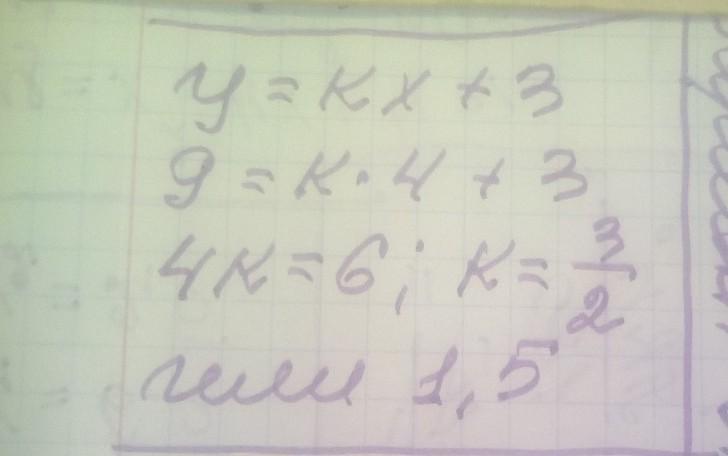 y = kx + 3
9 = k · 4 + 3
4k = 6; k = 3/2
или 1,5